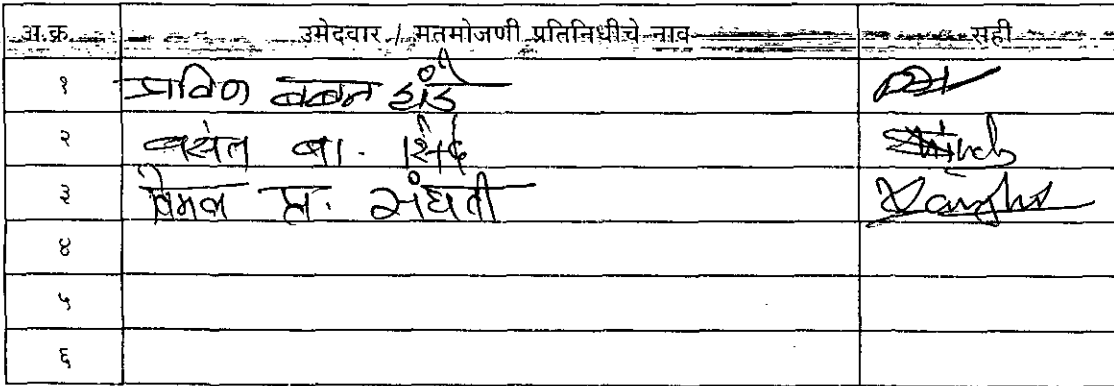 अ.क्र. उमेदवार / मतमोजणी प्रतिनिधीचे नाव सही
१ प्रविण बबन
२ वसंत बा. शिंदे
३ विमल प्र. संघवी
४
५
६